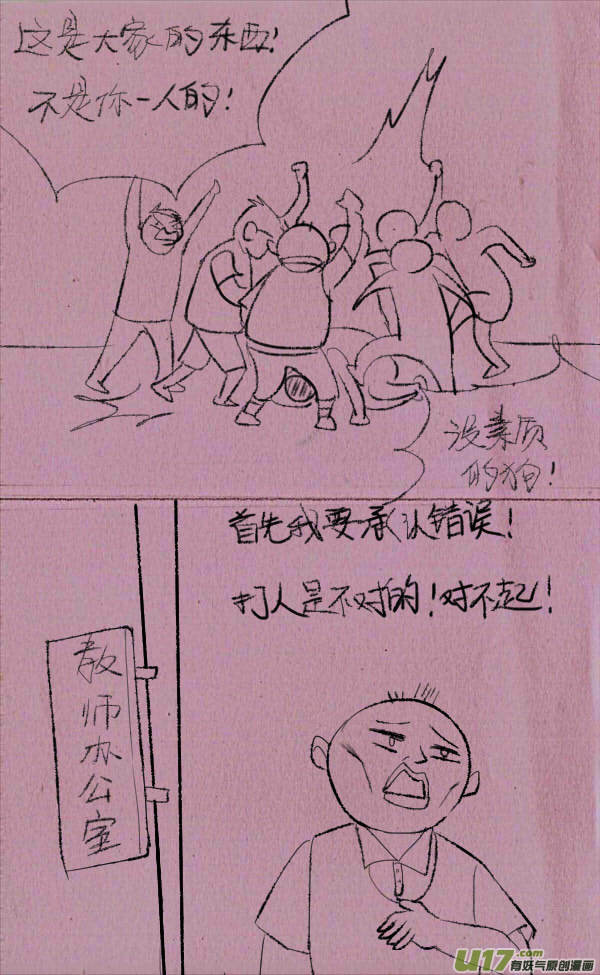 这是大家的东西!
不是你一人的!
没素质
的狗!
首先我要承认错误!
打人是不对的!对不起!
教师办公室
U17.com
有妖气原创漫画